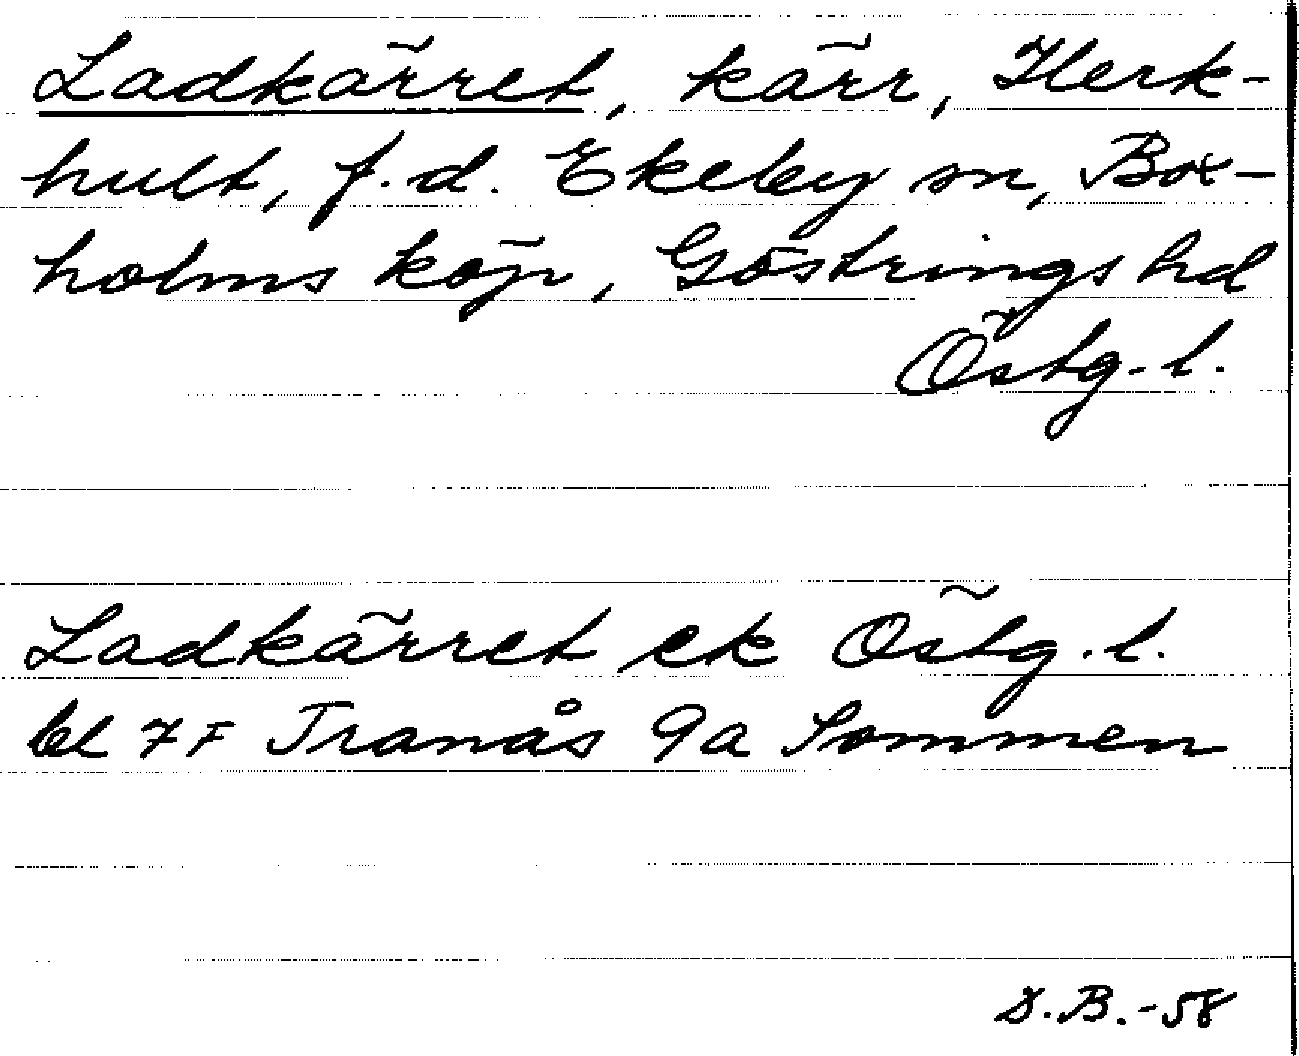 Ladkärret, kärr, Herk-
hult, f.d. Ekeby sn, Box-
holms köp, Göstrings hd
Östg. l.
Ladkärret ek Östg. l.
bl 7F Tranås 9a Sommen
D.B.-58